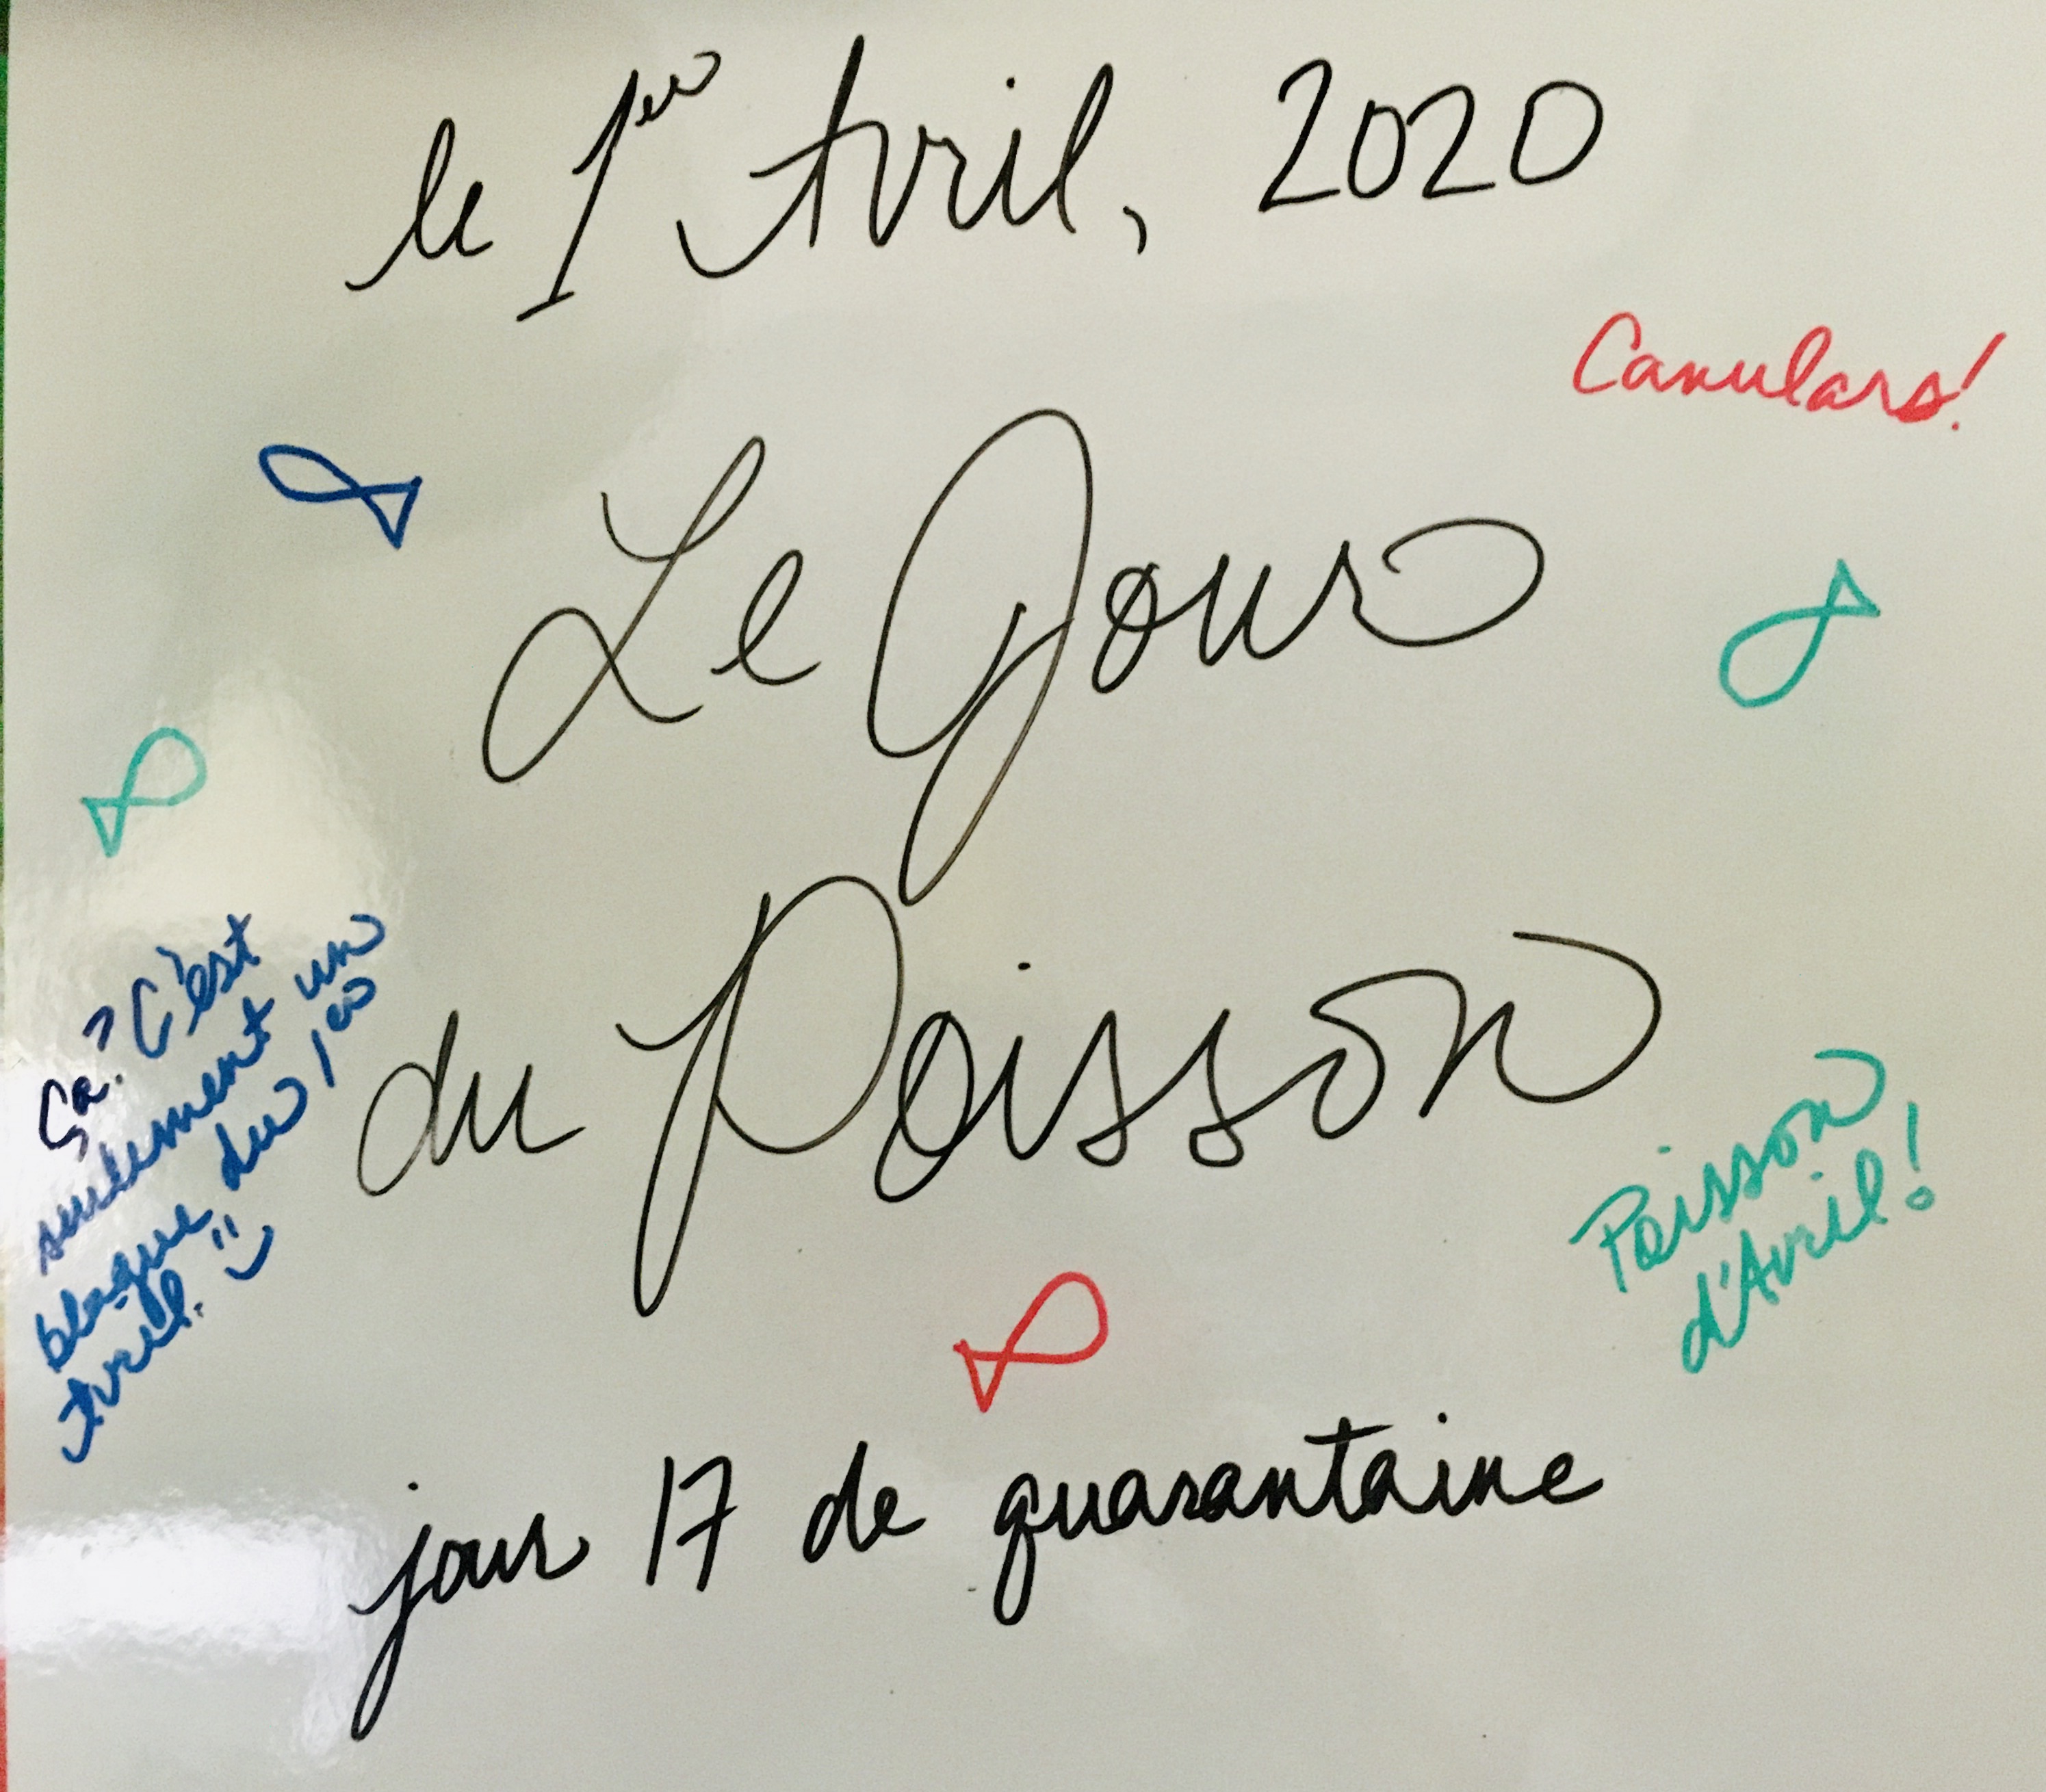 le 1er Avril, 2020
Canulars!
Le Jour
du Poisson
Ça? C'est
seulement un
blague du 1er
Avril.
Poisson
d'Avril!
jour 17 de quarantaine